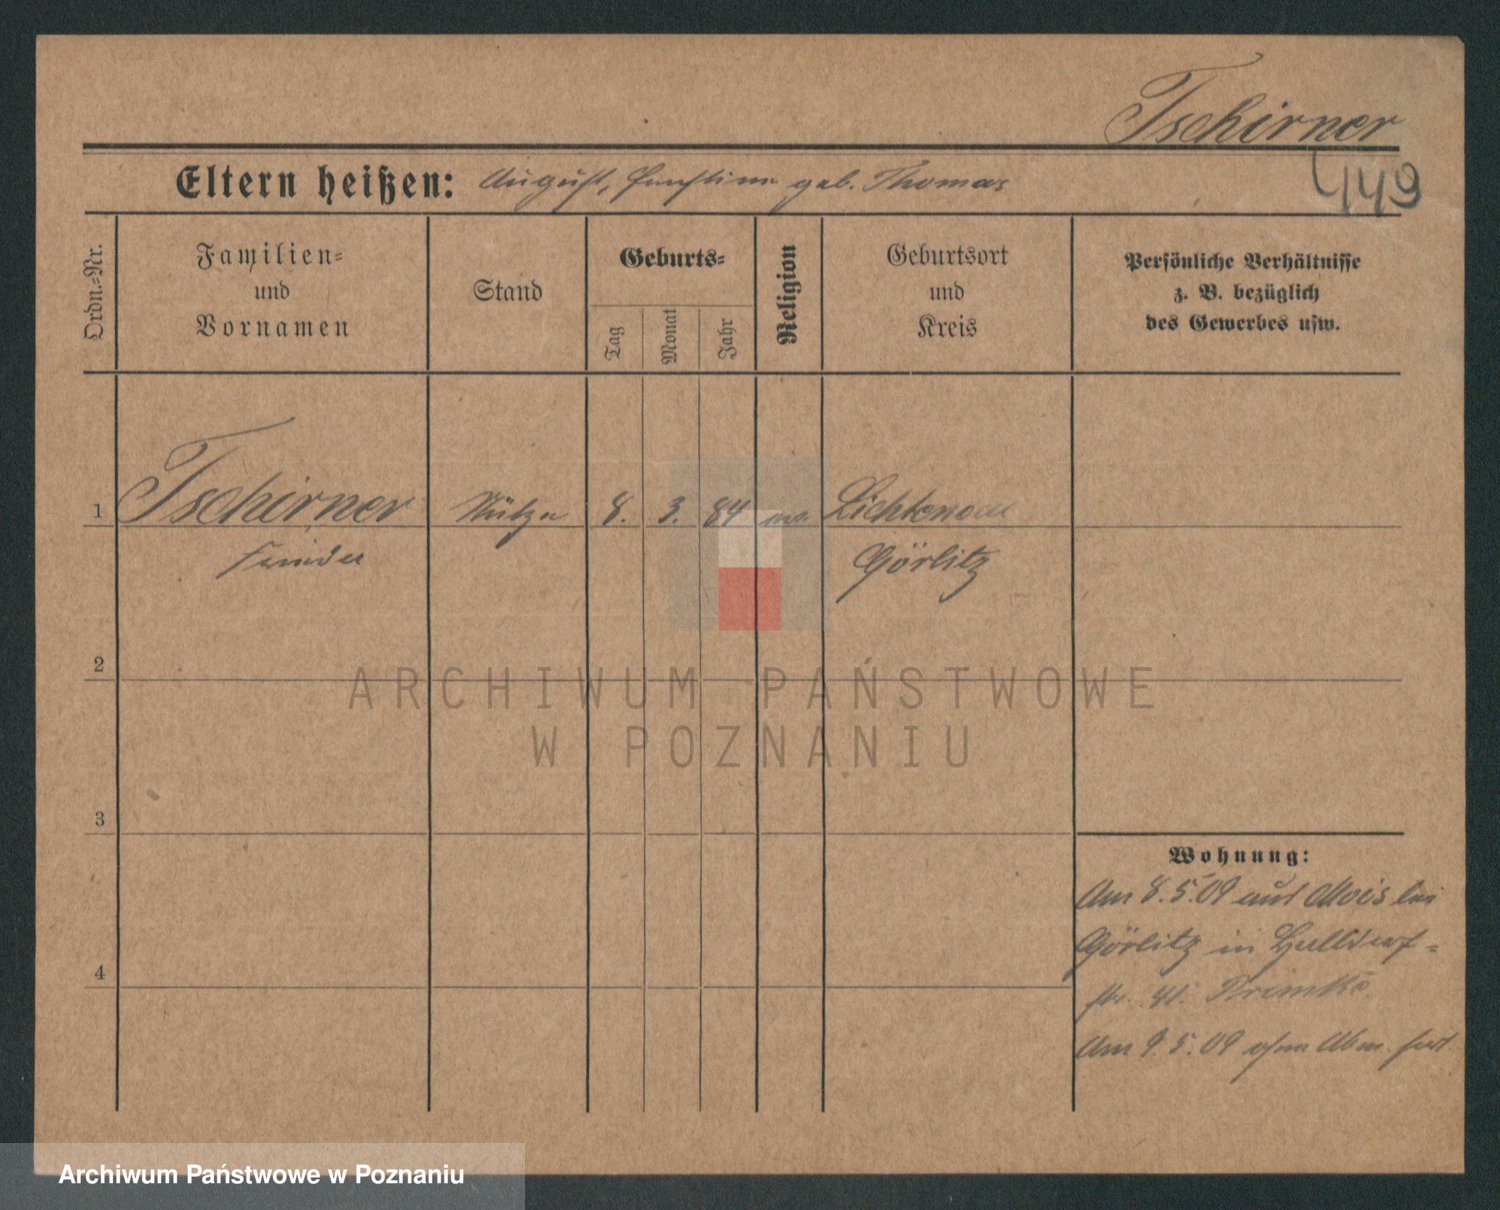 Tschirner
449
Eltern heißen: August, geb. Thomas
Ordn.-Nr.
Familien-
und
Vornamen
Stand
Geburts-
Tag
Monat
Jahr
Religion
Geburtsort
und
Kreis
Persönliche Verhältnisse
z. B. bezüglich
des Gewerbes usw.
1 Tschirner Stütze 8. 3. 84 ev.
Görlitz
2
3
4
Wohnung:
Am 8.5.09 aus Mois bei
Görlitz in
str.
Am 9.5.09 ohne Abm. fort
ARCHIWUM PAŃSTWOWE
W POZNANIU
Archiwum Państwowe w Poznaniu